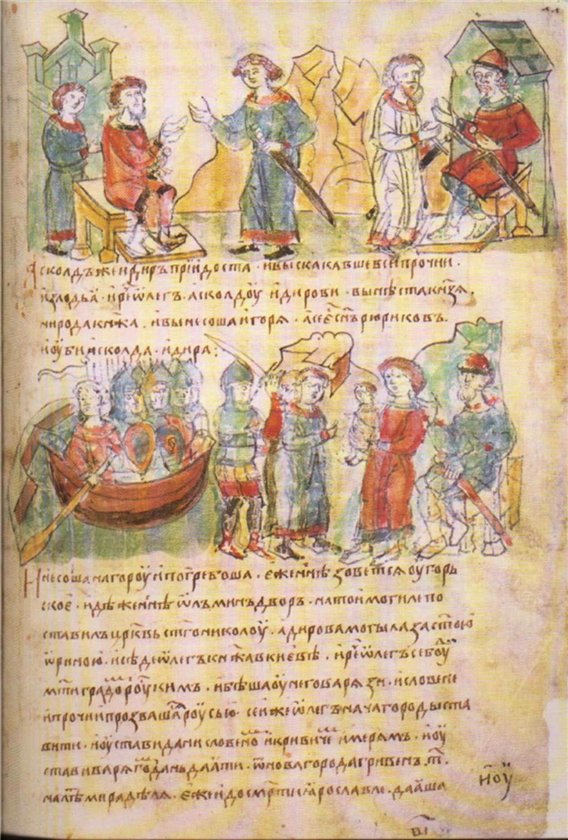 Асколдъ же и диръ придоста · и выскакавше вси прочии ·
излодьа · и рⷱ҇е ѡлегъ асколдоу и дирови · вы нѣста кн҃зѧ
ни рода кнѧжа · и вынесоша игорѧ · а се єⷭ҇ сн҃ъ рюриковъ
и оубиша асколда · и дира:
И несоша на гороу и погребоша · єже нн҃ѣ зоветсѧ оугорь
скоє · идѣже нн҃ѣ ѡлъминъ дворъ · на тои могиле по
ставилъ црк҃вь ст҃го николоу · а дирова могыла за ст҃ою
ѡриною · и сѣде ѡлегъ кнѧжа в киевѣ · и рⷱ҇е ѡлегъ се боуⷣ
мт҃и градоⷨ роуⷭ҇кимъ · и бѣша оу него варѧзи · и словене
и прочии прозвашасѧ роусью · сеи же ѡлегъ нача городы ста
вити · и оустави дани словеноⷨ и кривичеⷨ и мерѧмъ · и оу
стави варѧгоⷨ дань даꙗти · ѿ новагорода гривенъ т҃ ·
на лѣⷮ мира дѣлѧ · єже и до смр҃ти ꙗрославлѧ даꙗша